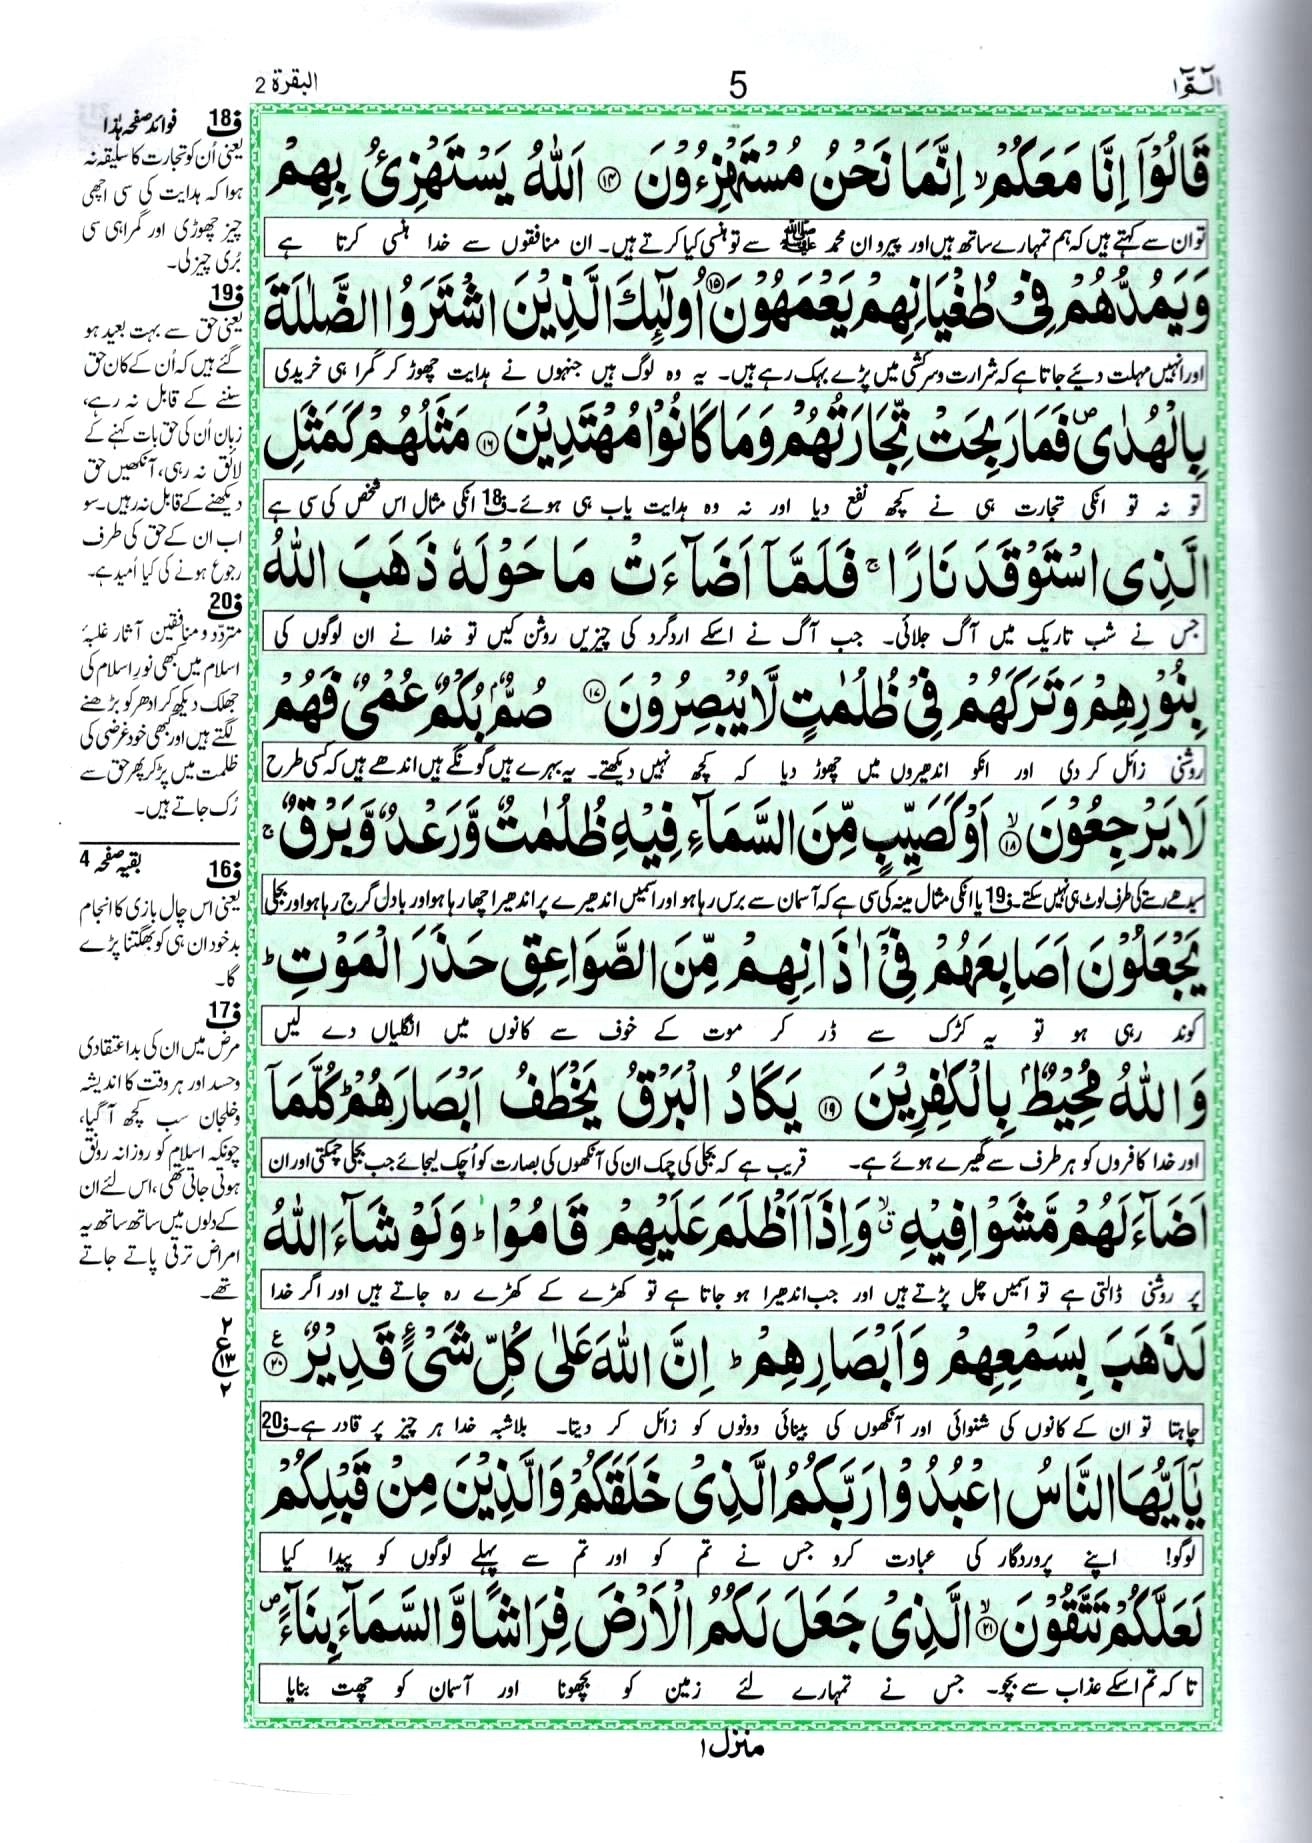 الٓمّٓ ۱
5
البقرة 2
قَالُوْۤا اِنَّا مَعَكُمْ ۙ اِنَّمَا نَحْنُ مُسْتَهْزِءُوْنَ ۝۱۴ اَللّٰهُ يَسْتَهْزِئُ بِهِمْ
تو ان سے کہتے ہیں کہ ہم تمہارے ساتھ ہیں اور پیروانِ محمد ﷺ سے تو ہنسی کیا کرتے ہیں۔ ان منافقوں سے خدا ہنسی کرتا ہے
وَيَمُدُّهُمْ فِيْ طُغْيَانِهِمْ يَعْمَهُوْنَ ۝۱۵ اُولٰٓئِكَ الَّذِيْنَ اشْتَرَوُا الضَّلٰلَةَ
اور انہیں مہلت دیئے جاتا ہے کہ شرارت وسرکشی میں پڑے بہک رہے ہیں۔ یہ وہ لوگ ہیں جنہوں نے ہدایت چھوڑ کر گمراہی خریدی
بِالْهُدٰى ۪ فَمَا رَبِحَتْ تِّجَارَتُهُمْ وَمَا كَانُوْا مُهْتَدِيْنَ ۝۱۶ مَثَلُهُمْ كَمَثَلِ
تو نہ تو انکی تجارت ہی نے کچھ نفع دیا اور نہ وہ ہدایت یاب ہی ہوئے۔ ف18 انکی مثال اس شخص کی سی ہے
الَّذِى اسْتَوْقَدَ نَارًا ۚ فَلَمَّاۤ اَضَآءَتْ مَا حَوْلَهٗ ذَهَبَ اللّٰهُ
جس نے شب تاریک میں آگ جلائی۔ جب آگ نے اسکے اردگرد کی چیزیں روشن کیں تو خدا نے ان لوگوں کی
بِنُوْرِهِمْ وَتَرَكَهُمْ فِيْ ظُلُمٰتٍ لَّا يُبْصِرُوْنَ ۝۱۷ صُمٌّۢ بُكْمٌ عُمْىٌ فَهُمْ
روشنی زائل کر دی اور انکو اندھیروں میں چھوڑ دیا کہ کچھ نہیں دیکھتے۔ یہ بہرے ہیں گونگے ہیں اندھے ہیں کہ کسی طرح
لَا يَرْجِعُوْنَ ۙ۝۱۸ اَوْ كَصَيِّبٍ مِّنَ السَّمَآءِ فِيْهِ ظُلُمٰتٌ وَّرَعْدٌ وَّبَرْقٌ ۚ
سیدھے رستے کی طرف لوٹ ہی نہیں سکتے۔ ف19 یا انکی مثال مینہ کی سی ہے کہ آسمان سے برس رہا ہو اور اسمیں اندھیرے پر اندھیرا چھا رہا ہو اور بادل گرج رہا ہو اور بجلی
يَجْعَلُوْنَ اَصَابِعَهُمْ فِيْۤ اٰذَانِهِمْ مِّنَ الصَّوَاعِقِ حَذَرَ الْمَوْتِ ؕ
کوند رہی ہو تو یہ کڑک سے ڈر کر موت کے خوف سے کانوں میں انگلیاں دے لیں
وَاللّٰهُ مُحِيْطٌۢ بِالْكٰفِرِيْنَ ۝۱۹ يَكَادُ الْبَرْقُ يَخْطَفُ اَبْصَارَهُمْ ؕ كُلَّمَاۤ
اور خدا کافروں کو ہر طرف سے گھیرے ہوئے ہے۔ قریب ہے کہ بجلی کی چمک ان کی آنکھوں کی بصارت کو اُچک لیجائے جب بجلی چمکتی اور ان
اَضَآءَ لَهُمْ مَّشَوْا فِيْهِ ۙ وَاِذَاۤ اَظْلَمَ عَلَيْهِمْ قَامُوْا ؕ وَلَوْ شَآءَ اللّٰهُ
پر روشنی ڈالتی ہے تو اسمیں چل پڑتے ہیں اور جب اندھیرا ہو جاتا ہے تو کھڑے کے کھڑے رہ جاتے ہیں اور اگر خدا
لَذَهَبَ بِسَمْعِهِمْ وَاَبْصَارِهِمْ ؕ اِنَّ اللّٰهَ عَلٰى كُلِّ شَىْءٍ قَدِيْرٌ ۝۲۰ ع
چاہتا تو ان کے کانوں کی شنوائی اور آنکھوں کی بینائی دونوں کو زائل کر دیتا۔ بلاشبہ خدا ہر چیز پر قادر ہے۔ ف20
يٰۤاَيُّهَا النَّاسُ اعْبُدُوْا رَبَّكُمُ الَّذِىْ خَلَقَكُمْ وَالَّذِيْنَ مِنْ قَبْلِكُمْ
لوگو! اپنے پروردگار کی عبادت کرو جس نے تم کو اور تم سے پہلے لوگوں کو پیدا کیا
لَعَلَّكُمْ تَتَّقُوْنَ ۙ۝۲۱ الَّذِىْ جَعَلَ لَكُمُ الْاَرْضَ فِرَاشًا وَّالسَّمَآءَ بِنَآءً ۪
تا کہ تم اسکے عذاب سے بچو۔ جس نے تمہارے لئے زمین کو بچھونا اور آسمان کو چھت بنایا
منزل ۱
ف18 فوائد صفحہ ہٰذا
یعنی اُن کو تجارت کا سلیقہ نہ
ہوا کہ ہدایت کی سی اچھی
چیز چھوڑی اور گمراہی سی
بُری چیز لی۔
ف19
یعنی حق سے بہت بعید ہو
گئے ہیں کہ اُن کے کان حق
سننے کے قابل نہ رہے،
زبان اُن کی حق بات کہنے کے
لائق نہ رہی، آنکھیں حق
دیکھنے کے قابل نہ رہیں۔ سو
اب ان کے حق کی طرف
رجوع ہونے کی کیا اُمید ہے۔
ف20
متردّد و منافقین آثار غلبۂ
اسلام میں کبھی نورِ اسلام کی
جھلک دیکھ کر ادھر کو بڑھنے
لگتے ہیں اور کبھی خود غرضی کی
ظلمت میں پڑ کر پھر حق سے
رُک جاتے ہیں۔
بقیہ صفحہ 4
ف16
یعنی اس چال بازی کا انجام
بد خود ان ہی کو بھگتنا پڑے
گا۔
ف17
مرض میں ان کی بداعتقادی
وحسد اور ہر وقت کا اندیشہ
وخلجان سب کچھ آ گیا،
چونکہ اسلام کو روزانہ رونق
ہوتی جاتی تھی، اس لئے ان
کے دلوں میں ساتھ ساتھ یہ
امراض ترقی پاتے جاتے
تھے۔
۲
ع
۱۳
۲